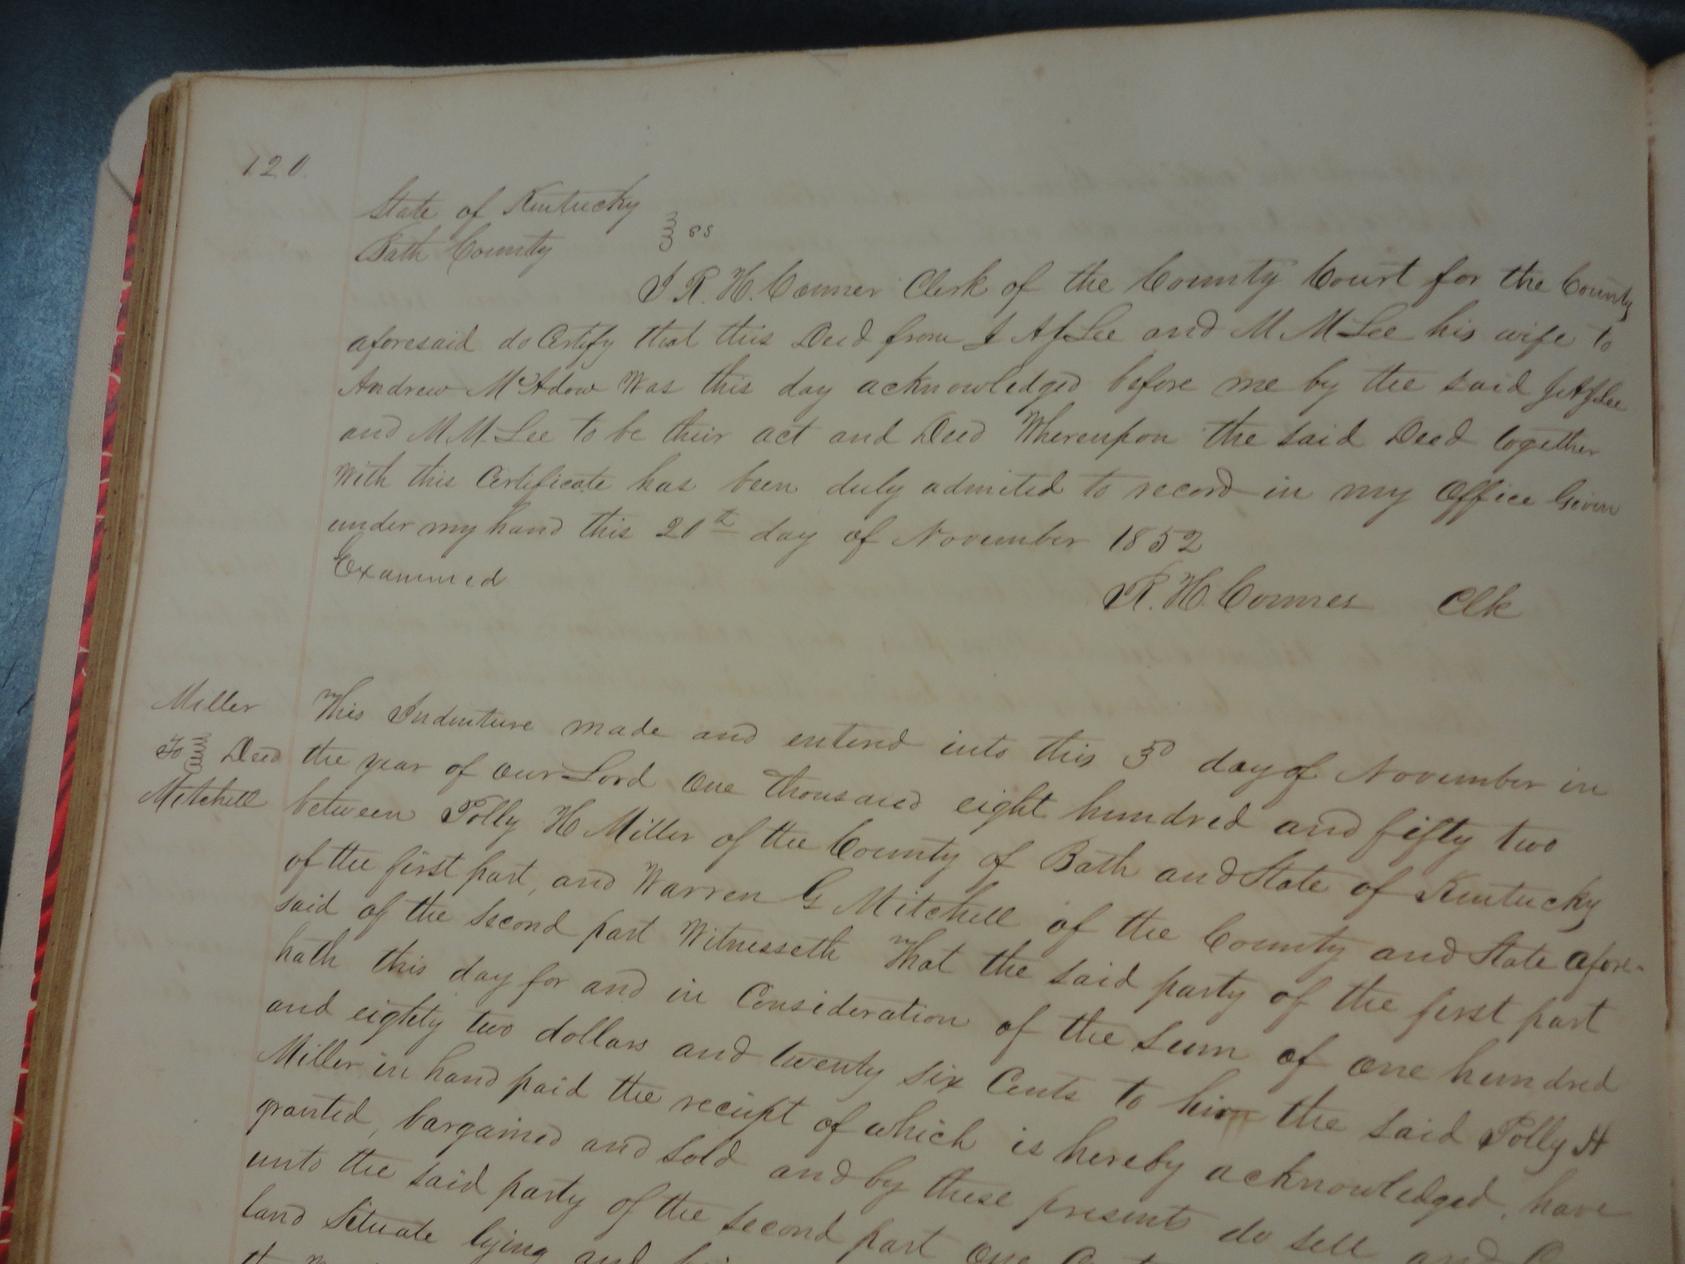 120.
State of Kentucky
Bath County } ss
I R. H. Conner Clerk of the County Court for the County
aforesaid do Certify that this Deed from J A J Lee and M M Lee his wife to
Andrew McAdow Was this day acknowledged before me by the said J A J Lee
and M M. Lee to be their act and Deed Whereupon the said Deed together
With this Certificate has been duly admited to record in my Office Given
under my hand this 20th day of November 1852
Examined
R. H. Conner Clk
Miller
To } Deed
Mitchell
This Indenture made and enterd into this 3d day of November in
the year of our Lord One thousand eight hundred and fifty two
between Polly H Miller of the County of Bath and State of Kentucky
of the first part, and Warren G Mitchell of the County and State afore-
said of the second part Witnesseth That the said party of the first part
hath this day for and in Consideration of the sum of one hundred
and eighty two dollars and twenty six Cents to him the said Polly H
Miller in hand paid the receipt of which is hereby acknowledged, have
granted, bargained and sold and by these presents do sell and
unto the said party of the second part One
land Situate lying and